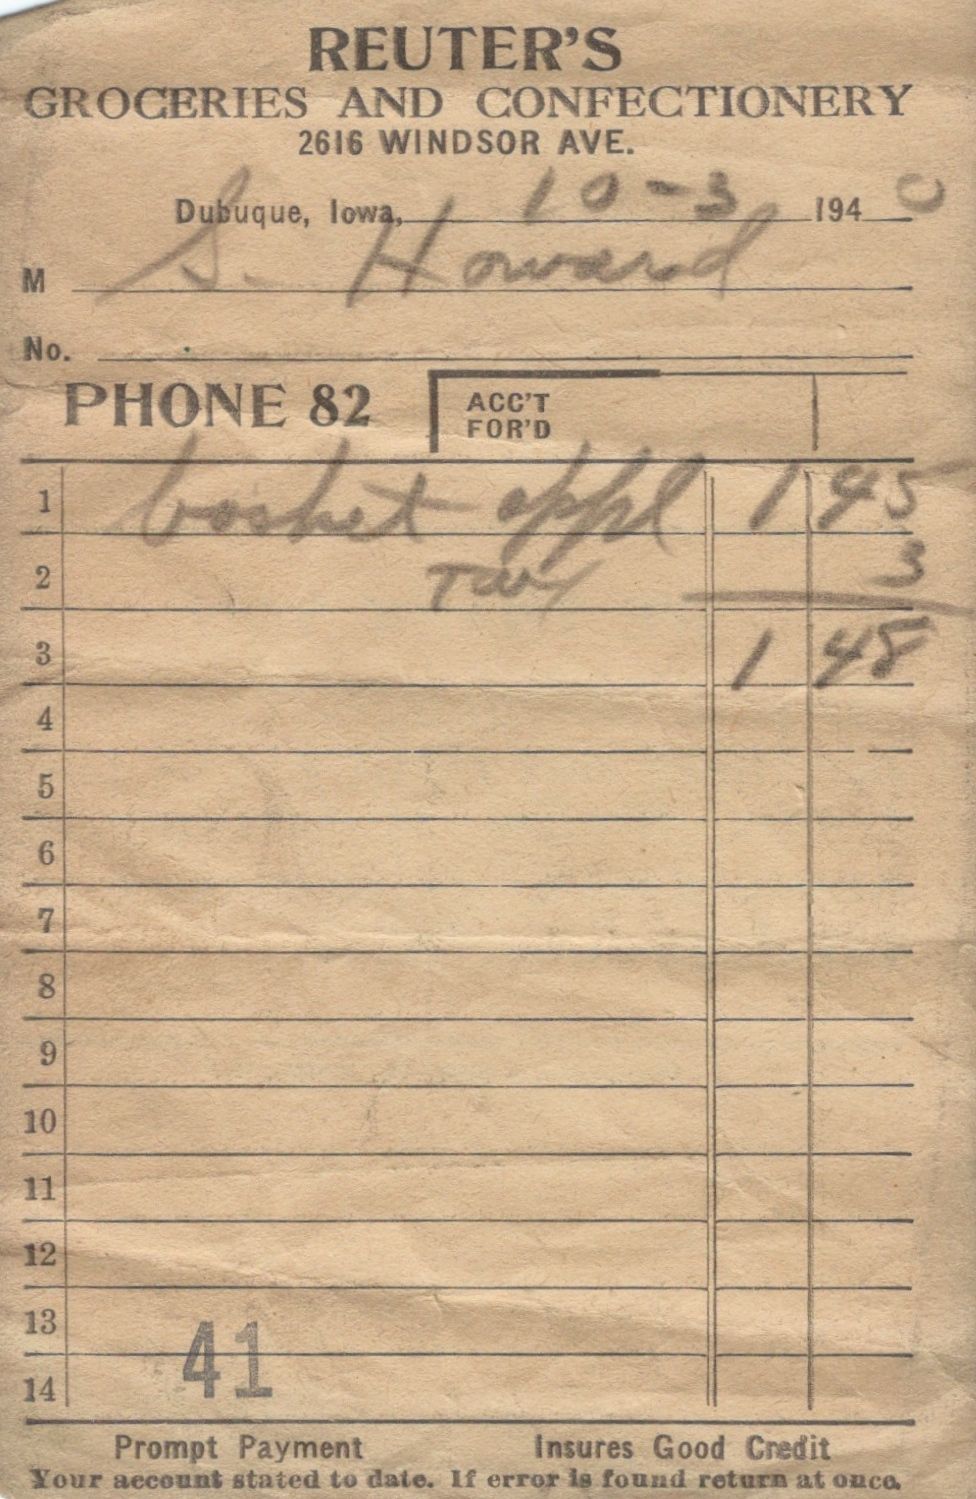 REUTER'S
GROCERIES AND CONFECTIONERY
2616 WINDSOR AVE.
Dubuque, Iowa, 10-3 1940
M S. Howard
No.
PHONE 82 ACC'T
FOR'D
1 basket appl 1 45
2 Tax 3
3 1 48
4
5
6
7
8
9
10
11
12
13
14
41
Prompt Payment Insures Good Credit
Your account stated to date. If error is found return at once.